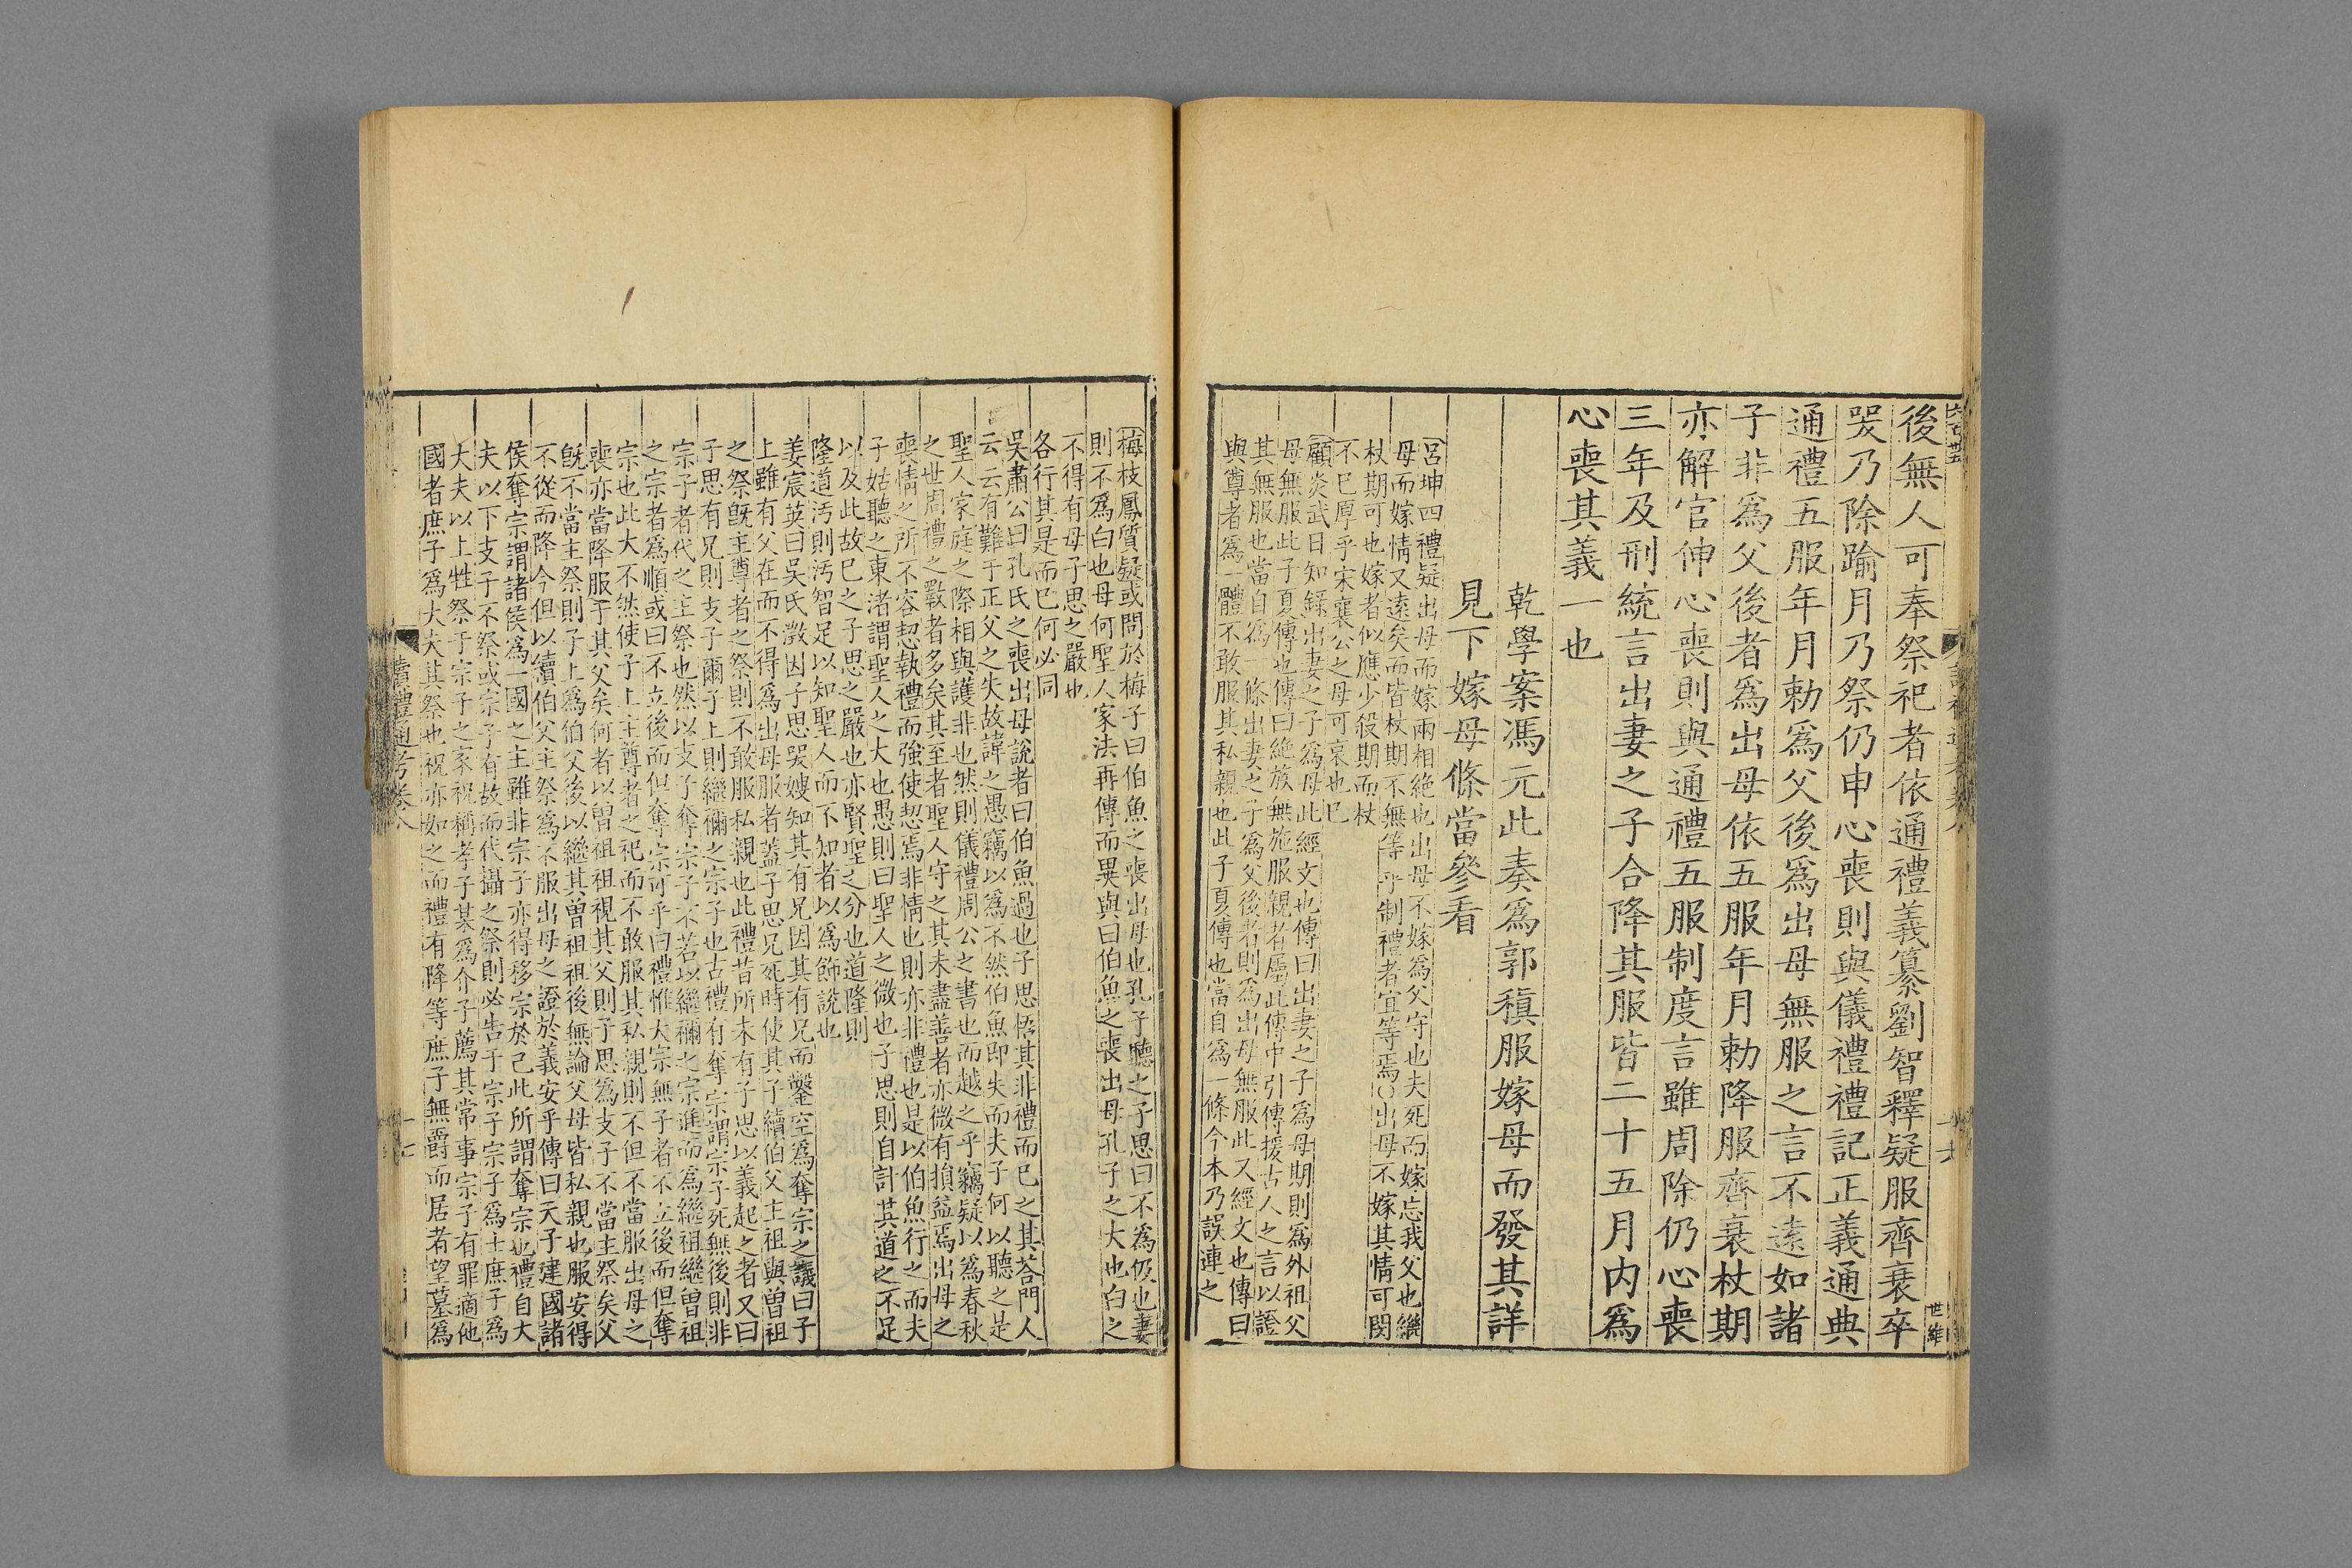 後無人可奉祭祀者依通禮義纂劉智釋疑服齊衰卒
哭乃除踰月乃祭仍申心喪則與儀禮禮記正義通典
通禮五服年月勅爲父後爲出母無服之言不遠如諸
子非爲父後者爲出母依五服年月勅降服齊衰杖期
亦解官伸心喪則與通禮五服制度言雖周除仍心喪
三年及刑統言出妻之子合降其服皆二十五月内爲
心喪其義一也
乾學案馮元此奏爲郭稹服嫁母而發其詳
見下嫁母條當參看
呂坤四禮疑出母而嫁兩相絶也出母不嫁爲父守也夫死而嫁忘我父也繼
母而嫁情又遠矣而皆杖期不無等乎制禮者宜等焉〇出母不嫁其情可閔
杖期可也嫁者似應少役期而杖
不已厚乎宋襄公之母可哀也已
顧炎武日知錄出妻之子爲母此經文也傳曰出妻之子爲母期則爲外祖父
母無服此子夏傳也傳曰絶族無施服親者屬此傳中引傳援古人之言以證
其無服也當自爲一條出妻之子爲父後者則爲出母無服此又經文也傳曰
與尊者爲一體不敢服其私親也此子夏傳也當自爲一條今本乃誤連之
梅枝鳳質疑或問於梅子曰伯魚之喪出母也孔子聽之子思曰不爲伋也妻
則不爲白也母何聖人家法再傳而異與曰伯魚之喪出母孔子之大也白之
不得有母子思之嚴也
各行其是而已何必同
吳肅公曰孔氏之喪出母說者曰伯魚過也子思悟其非禮而已之其荅門人
云云有難于正父之失故諱之愚竊以爲不然伯魚即失而夫子何以聽之是
聖人家庭之際相與護非也然則儀禮周公之書也而越之乎竊疑以爲春秋
之世周禮之斁者多矣其至者聖人守之其未盡善者亦微有損益焉出母之
喪情之所不容恝執禮而強使恝焉非情也則亦非禮也是以伯魚行之而夫
子姑聽之東渚謂聖人之大也愚則曰聖人之微也子思則自計其道之不足
以及此故已之子思之嚴也亦賢聖之分也道隆則
隆道污則污智足以知聖人而不知者以爲飾說也
姜宸英曰吳氏澂因子思哭嫂知其有兄因其有兄而鑿空爲奪宗之議曰子
上雖有父在而不得爲出母服者蓋子思兄死時使其子續伯父主祖與曾祖
之祭旣主尊者之祭則不敢服私親也此禮昔所未有子思以義起之者又曰
子思有兄則支子爾子上則繼禰之宗子也古禮有奪宗謂宗子死無後則非
宗子者代之主祭也然以支子奪宗子不若以繼禰之宗進而爲繼祖繼曾祖
之宗者爲順或曰不立後而但奪宗可乎曰禮惟大宗無子者不立後而但奪
宗也此大不然使子上主尊者之祀而不敢服其私親則不但不當服出母之
喪亦當降服于其父矣何者以曾祖祖視其父則子思爲支子不當主祭矣父
旣不當主祭則子上爲伯父後以繼其曾祖祖後無論父母皆私親也服安得
不從而降今但以續伯父主祭爲不服出母之證於義安乎傳曰天子建國諸
侯奪宗謂諸侯爲一國之主雖非宗子亦得移宗於己此所謂奪宗也禮自大
夫以下支子不祭或宗子有故而代攝之祭則必告于宗子宗子爲士庶子爲
大夫以上牲祭于宗子之家祝稱孝子某爲介子薦其常事宗子有罪適他
國者庶子爲大夫其祭也祝亦如之而禮有降等庶子無爵而居者望墓爲
讀禮通考卷八
十七